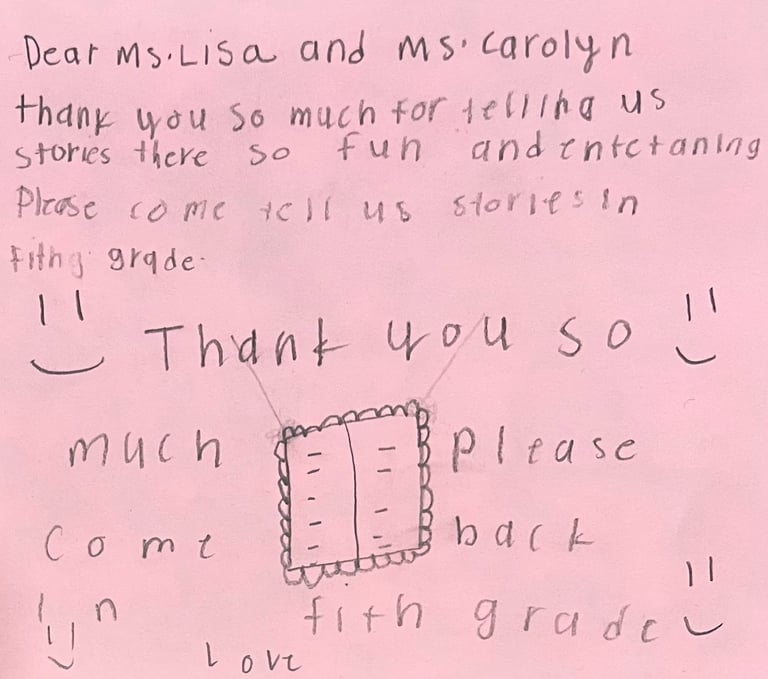 Dear Ms. Lisa and Ms. Carolyn
thank you so much for telling us
stories there so fun and entetaning
Please come tell us stories in
fithg grade.
Thank you so
much please
come back
in fith grade
Love